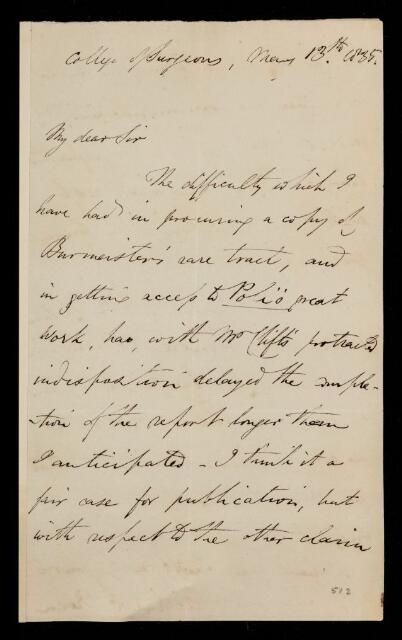 College of Surgeons, May 13.th 1835.
My dear Sir
The difficulty which I
have had in procuring a copy of
Burmeister's rare tract, and
in getting access to Poli's great
work, has, with Mr Clift's protracted
indisposition delayed the comple-
-tion of the report longer than
I anticipated - I think it a
fair case for publication, but
with respect to the other claim
512